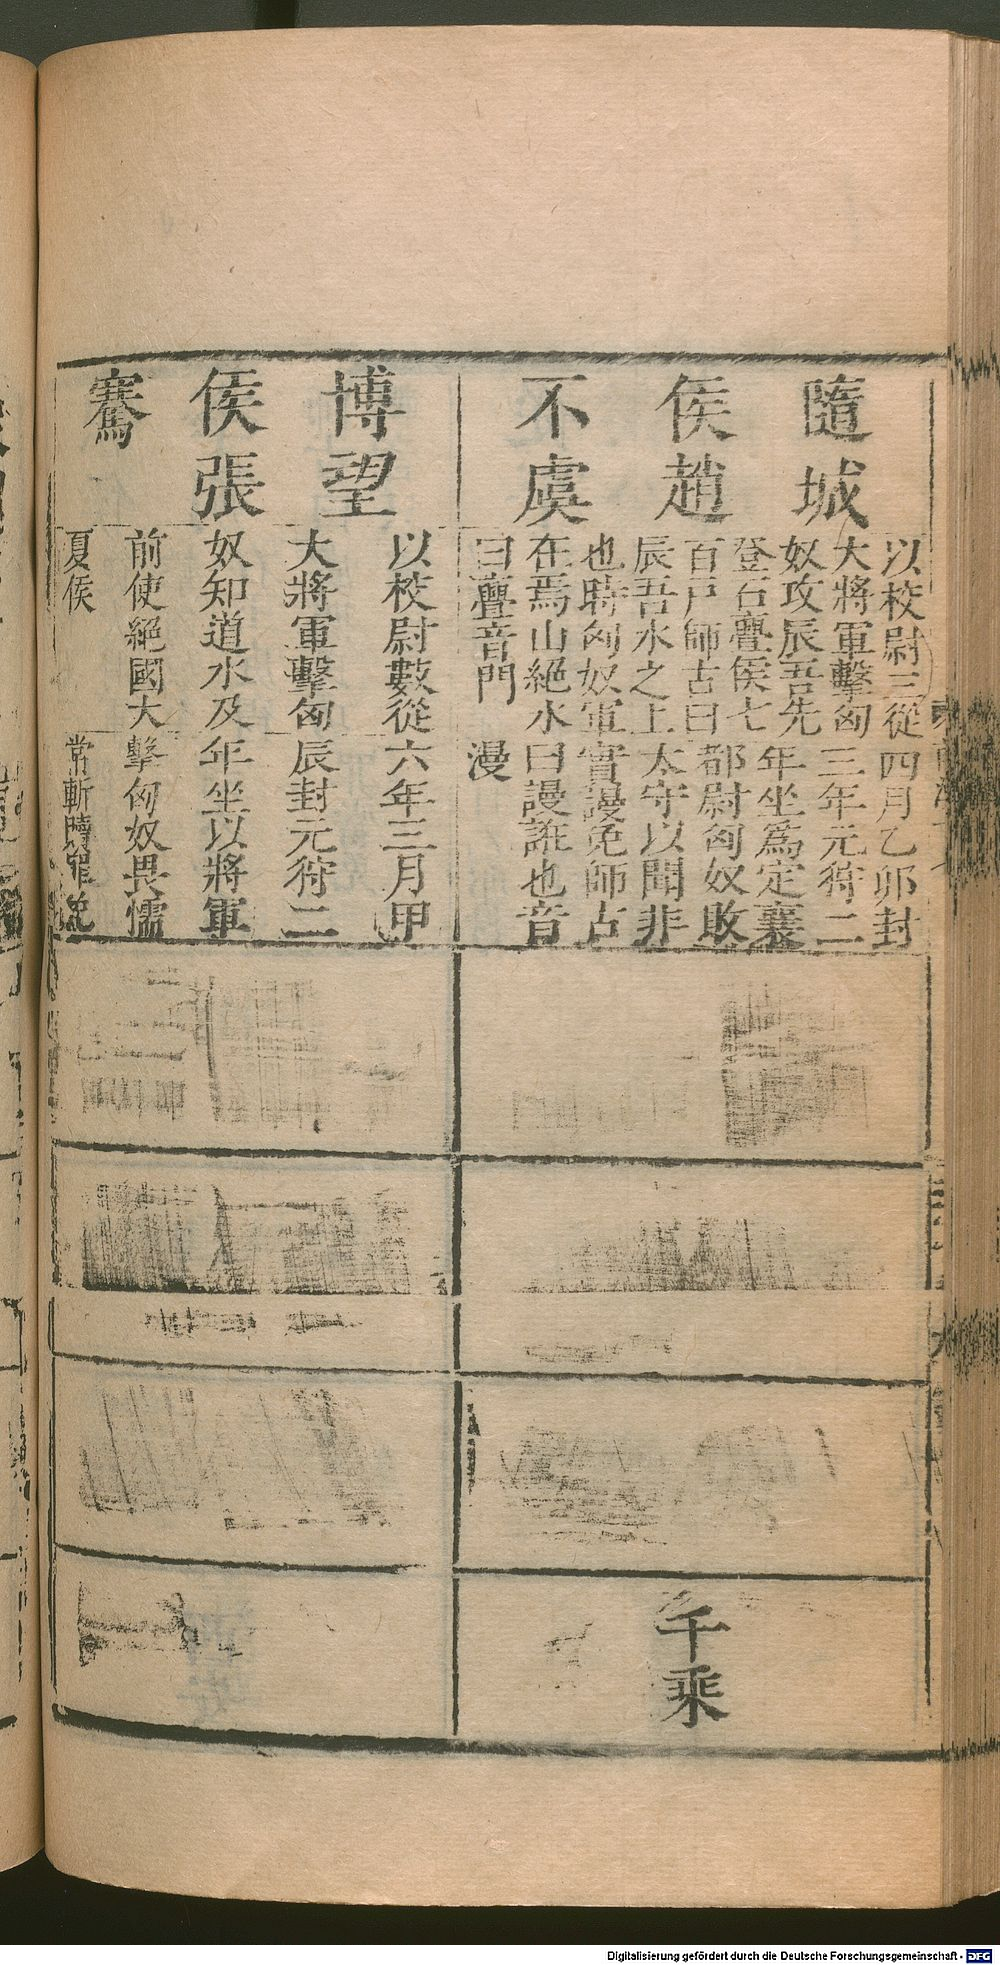 隨城
侯趙
不虞
以校尉三從
大將軍擊匈
奴攻辰吾先
登石亹侯七
百戸師古曰
辰吾水之上
也時匈奴軍
在焉山絕水
曰亹音門
四月乙卯封
三年元狩二
年坐爲定襄
都尉匈奴敗
太守以聞非
實謾免師古
曰謾誑也音
漫
千乘
博望
侯張
騫
以校尉數從
大將軍擊匈
奴知道水及
前使絕國大
夏侯
六年三月甲
辰封元狩二
年坐以將軍
擊匈奴畏懦
當斬贖罪免
Digitalisierung gefördert durch die Deutsche Forschungsgemeinschaft - DFG